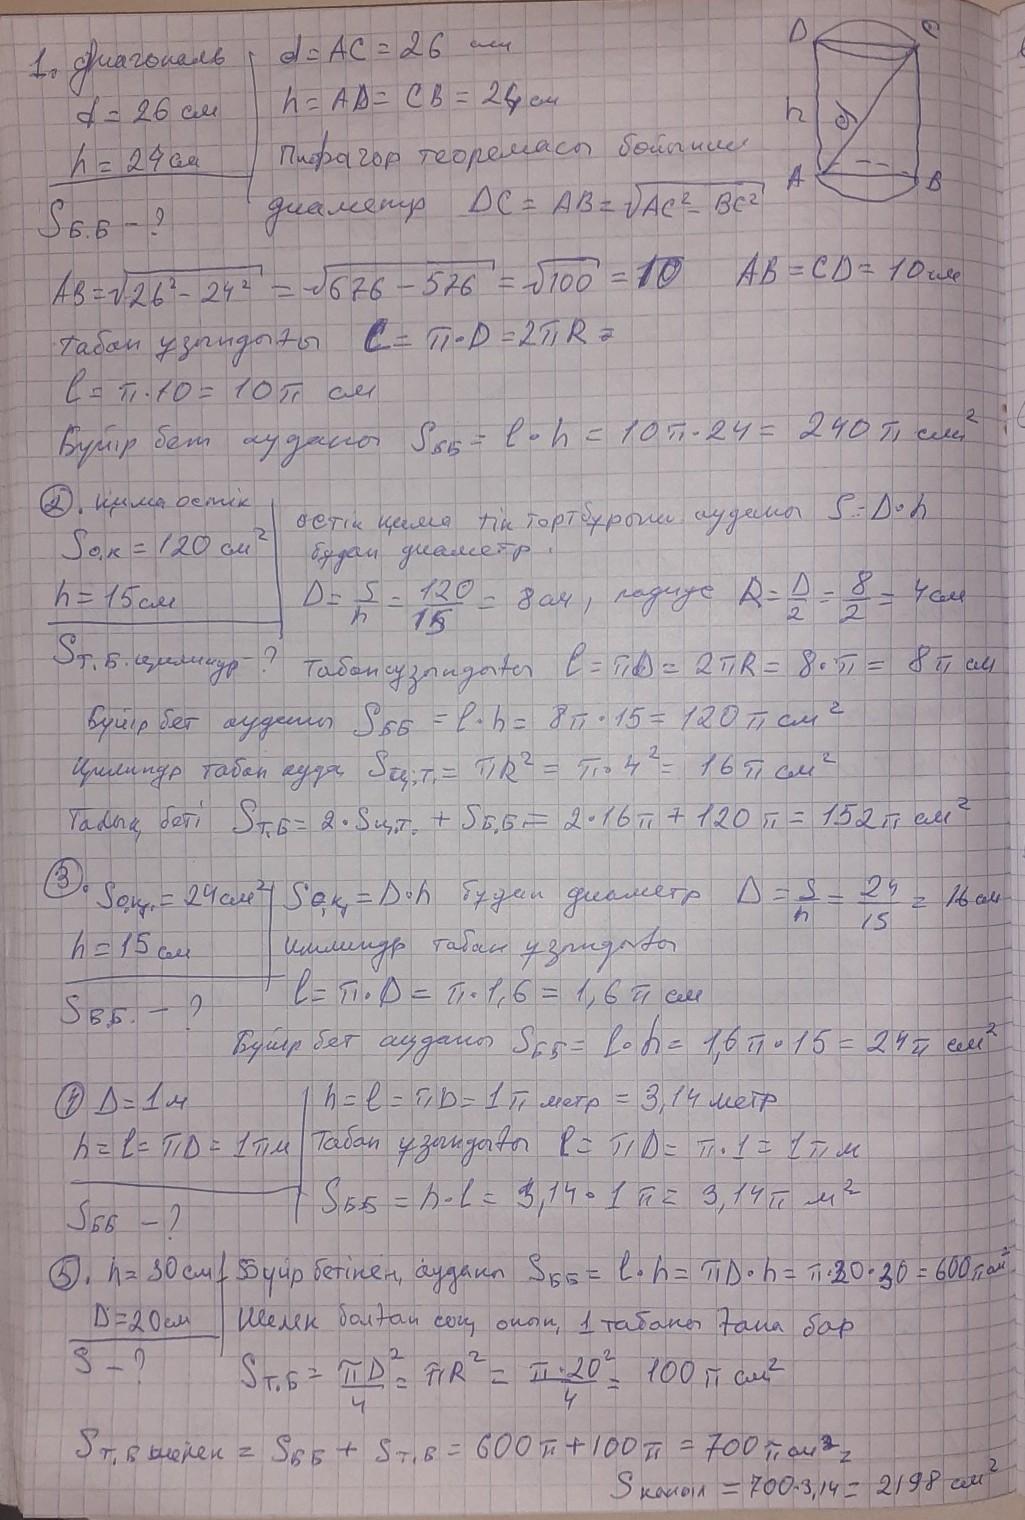 1. Диагональ d = AC = 26 см
d = 26 см h = AD = CB = 24 см
h = 24 см Пифагор теоремасы бойынша
Sб.б – ? диаметр DC = AB = √AC² – BC²
D C h d A B
AB = √26² – 24² = √676 – 576 = √100 = 10 AB = CD = 10 см
табан ұзындығы C = π·D = 2πR =
l = π·10 = 10π см
Бүйір бет ауданы Sбб = l·h = 10π·24 = 240π см²
2. қима остік остік қима тік тортбурыш ауданы S = D·h
Sо.к = 120 см² бұдан диаметр.
h = 15 см D = S/h = 120/15 = 8 см, радиус R = D/2 = 8/2 = 4 см
Sт.б. цилиндр – ? табан ұзындығы l = πD = 2πR = 8·π = 8π см
Бүйір бет ауданы Sбб = l·h = 8π·15 = 120π см²
Цилиндр табан ауда Sц.т. = πR² = π·4² = 16π см²
Толық беті Sт.б = 2·Sц.т. + Sб.б = 2·16π + 120π = 152π см²
3. Sо.қ. = 24 см² Sо.қ = D·h бұдан диаметр D = S/h = 24/15 = 16 см
h = 15 см цилиндр табан ұзындығы
Sбб. – ? l = π·D = π·1,6 = 1,6π см
Бүйір бет ауданы Sбб = l·h = 1,6π·15 = 24π см²
4 D = 1 м h = l = πD = 1π метр = 3,14 метр
h = l = πD = 1πм Табан ұзындығы l = πD = π·1 = 1πм
Sбб – ? Sбб = h·l = 3,14·1π = 3,14π м²
5. h = 30 см Бүйір бетінең ауданы Sбб = l·h = πD·h = π·20·30 = 600π см²
D = 20 см Шелек болған соң оның 1 табаны ғана бар
S – ? Sт.б = πD²/4 = πR² = π·20²/4 = 100π см²
Sт.б шелек = Sбб + Sт.б = 600π + 100π = 700π см²
= 700·3,14 = 2198 см²